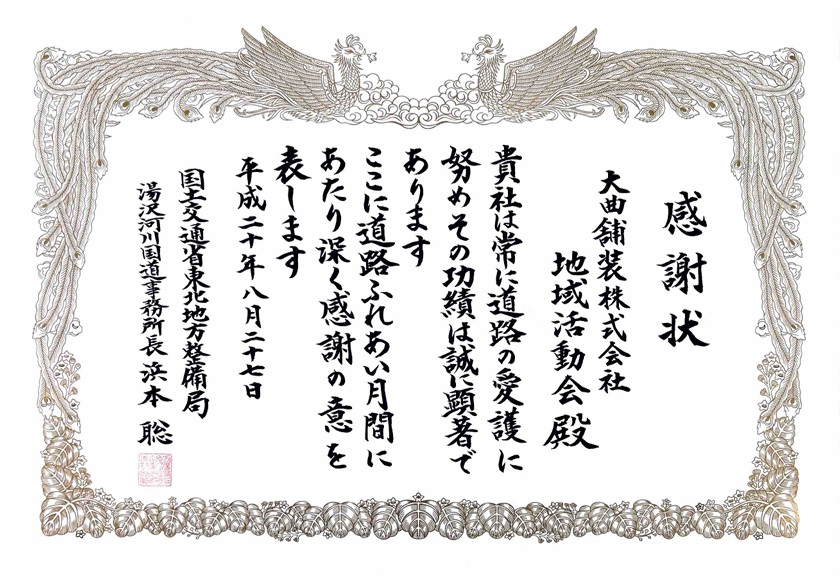 感謝状
大曲舗装株式会社
地域活動会殿
貴社は常に道路の愛護に
努めその功績は誠に顕著で
あります
ここに道路ふれあい月間に
あたり深く感謝の意を
表します
平成二十年八月二十七日
国土交通省東北地方整備局
湯沢河川国道事務所長 浜本 聡